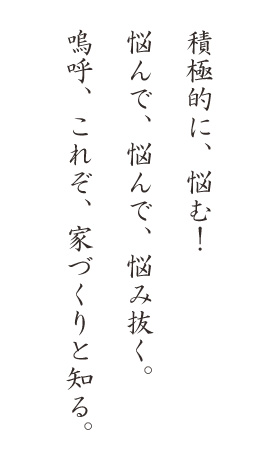 積極的に、悩む！
悩んで、悩んで、悩み抜く。
嗚呼、これぞ、家づくりと知る。